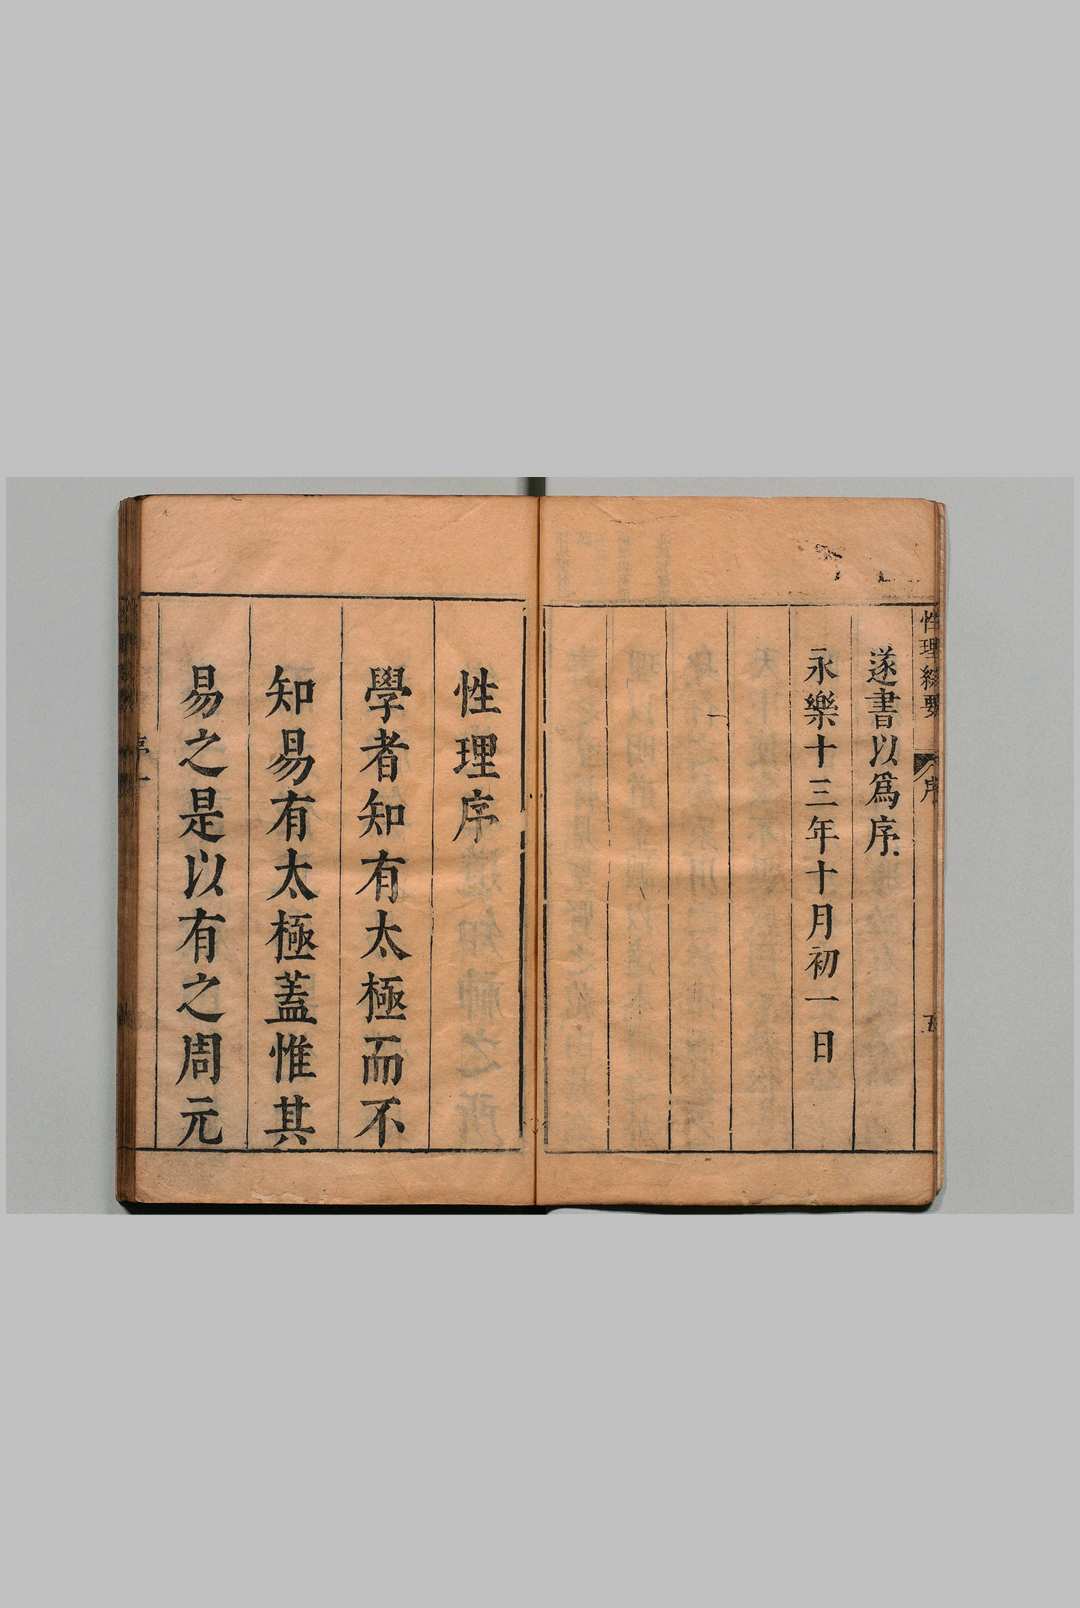 性理綜要
序
五
遂書以爲序
永樂十三年十月初一日
性理序
學者知有太極而不
知易有太極蓋惟其
易之是以有之周元
序
一